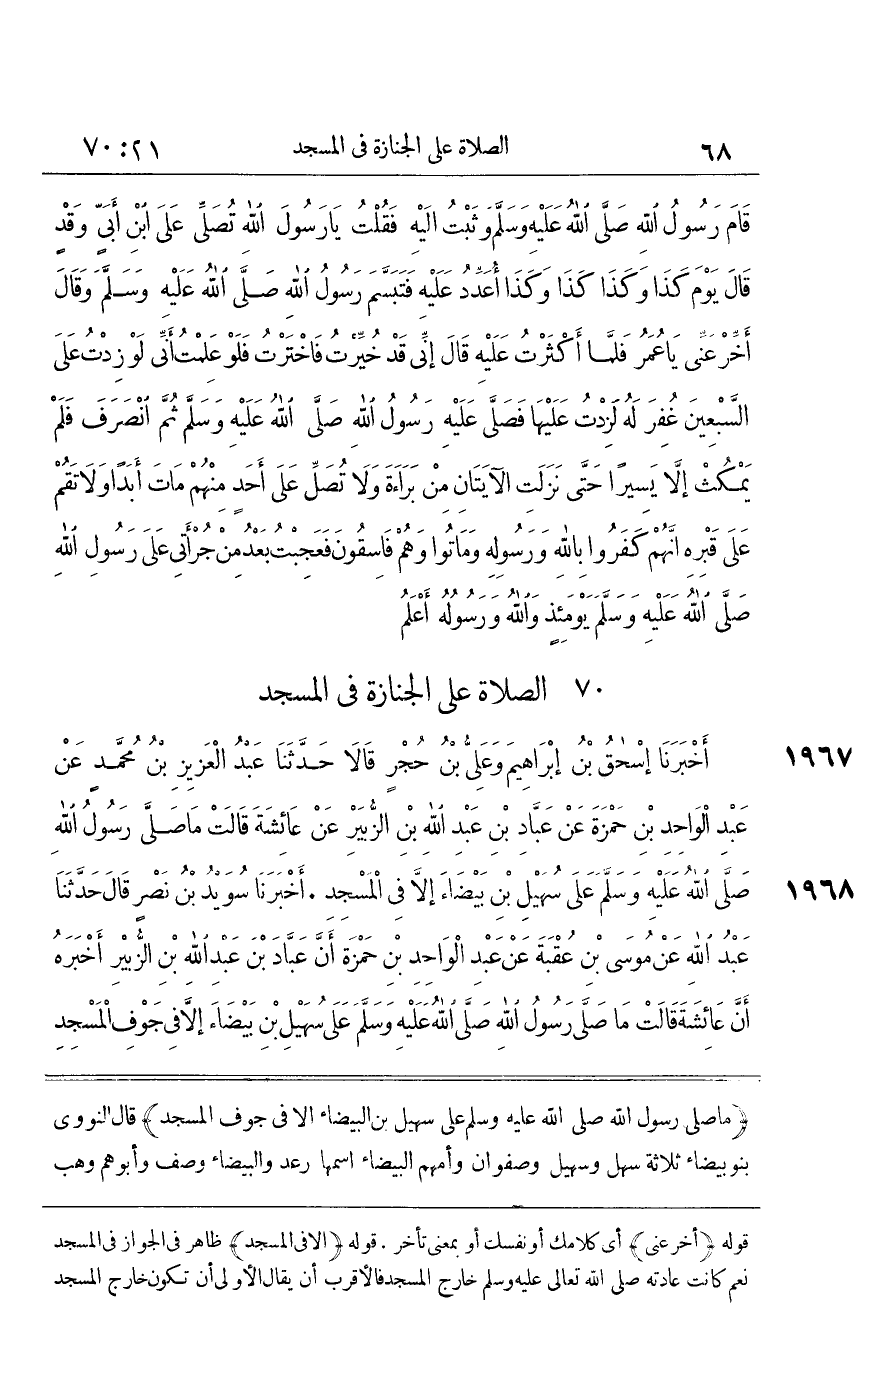 ٦٨ الصلاة على الجنازة فى المسجد ٢١: ٧٠
قَامَ رَسُولُ ٱللهِ صَلَّى ٱللهُ عَلَيْهِ وَسَلَّمَ وَثَبْتُ الَيْهِ فَقُلْتُ يَارَسُولَ ٱللهِ تُصَلِّى عَلَى ٱبْنِ أُبَىٍّ وَقَدْ
قَالَ يَوْمَ كَذَا وَكَذَا كَذَا وَكَذَا أُعَدِّدُ عَلَيْهِ فَتَبَسَّمَ رَسُولُ ٱللهِ صَلَّى ٱللهُ عَلَيْهِ وَسَلَّمَ وَقَالَ
أَخِّرْ عَنِّى يَاعُمَرُ فَلَمَّا أَكْثَرْتُ عَلَيْهِ قَالَ إِنِّى قَدْ خُيِّرْتُ فَاخْتَرْتُ فَلَوْ عَلِمْتُ أَنِّى لَوْ زِدْتُ عَلَى
السَّبْعِينَ غُفِرَ لَهُ لَزِدْتُ عَلَيْهَا فَصَلَّى عَلَيْهِ رَسُولُ ٱللهِ صَلَّى ٱللهُ عَلَيْهِ وَسَلَّمَ ثُمَّ ٱنْصَرَفَ فَلَمْ
يَمْكُثْ إِلَّا يَسِيرًا حَتَّى نَزَلَتِ الْآيَتَانِ مِنْ بَرَاءَةَ وَلَا تُصَلِّ عَلَى أَحَدٍ مِنْهُمْ مَاتَ أَبَدًا وَلَا تَقُمْ
عَلَى قَبْرِهِ إِنَّهُمْ كَفَرُوا بِاللهِ وَرَسُولِهِ وَمَاتُوا وَهُمْ فَاسِقُونَ فَعَجِبْتُ بَعْدُ مِنْ جُرْأَتِى عَلَى رَسُولِ ٱللهِ
صَلَّى ٱللهُ عَلَيْهِ وَسَلَّمَ يَوْمَئِذٍ وَٱللهُ وَرَسُولُهُ أَعْلَمُ
٧٠ الصلاة على الجنازة فى المسجد
١٩٦٧ أَخْبَرَنَا إِسْحٰقُ بْنُ إِبْرَاهِيمَ وَعَلِىُّ بْنُ حُجْرٍ قَالَا حَدَّثَنَا عَبْدُ الْعَزِيزِ بْنُ مُحَمَّدٍ عَنْ
عَبْدِ الْوَاحِدِ بْنِ حَمْزَةَ عَنْ عَبَّادِ بْنِ عَبْدِ ٱللهِ بْنِ الزُّبَيْرِ عَنْ عَائِشَةَ قَالَتْ مَاصَلَّى رَسُولُ ٱللهِ
١٩٦٨ صَلَّى ٱللهُ عَلَيْهِ وَسَلَّمَ عَلَى سُهَيْلِ بْنِ بَيْضَاءَ إِلَّا فِى الْمَسْجِدِ . أَخْبَرَنَا سُوَيْدُ بْنُ نَصْرٍ قَالَ حَدَّثَنَا
عَبْدُ ٱللهِ عَنْ مُوسَى بْنِ عُقْبَةَ عَنْ عَبْدِ الْوَاحِدِ بْنِ حَمْزَةَ أَنَّ عَبَّادَ بْنَ عَبْدِ ٱللهِ بْنِ الزُّبَيْرِ أَخْبَرَهُ
أَنَّ عَائِشَةَ قَالَتْ مَا صَلَّى رَسُولُ ٱللهِ صَلَّى ٱللهُ عَلَيْهِ وَسَلَّمَ عَلَى سُهَيْلِ بْنِ بَيْضَاءَ إِلَّا فِى جَوْفِ الْمَسْجِدِ
﴿ماصلى رسول الله صلى الله عليه وسلم على سهيل بن البيضاء الا فى جوف المسجد﴾ قال النووى
بنو بيضاء ثلاثة سهل وسهيل وصفوان وأمهم البيضاء اسمها رعد والبيضاء وصف وأبوهم وهب
قوله ﴿أخر عنى﴾ أى كلامك أو نفسك أو بمعنى تأخر . قوله ﴿الا فى المسجد﴾ ظاهر فى الجواز فى المسجد
نعم كانت عادته صلى الله تعالى عليه وسلم خارج المسجد فالأقرب أن يقال الأولى أن تكون خارج المسجد